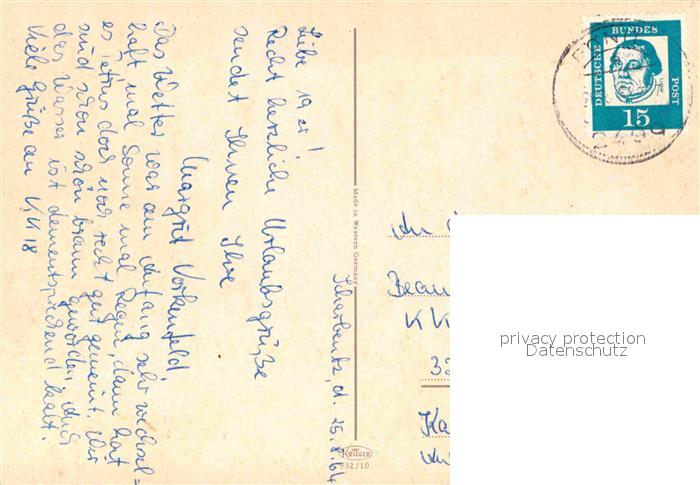 Scharbeutz, d. 25.8.64
Liebe 19 er!
Recht herzliche Urlaubsgrüße
sendet Ihnen Ihre
Margrit Vorkenfeld.
Das Wetter war am Anfang sehr wechsel=
haft mal Sonne mal Regen, dann hat
es doch noch recht gut gemeint. Wir
sind schon schön braun geworden, auch
das Wasser ist dementsprechend kalt.
Viele Grüße an KK 18
Made in Western Germany
KRÜGER
932/10
DEUTSCHE BUNDES POST
15
An
Beam
KK
33
Ka
privacy protection
Datenschutz